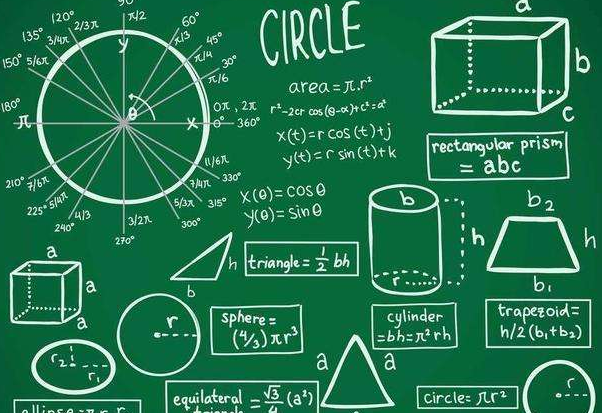 90°
π/2
120°
2/3π
60°
π/3
135°
3/4π
45°
π/4
150°
5/6π
30°
π/6
180°
π
y
θ
x
0π, 2π
0°
360°
210°
7/6π
225°
5/4π
240°
4/3
270°
3/2π
300°
5/3π
315°
7/4π
330°
11/6π
CIRCLE
area=π.r²
r²-2cr cos(θ-α)+c²=a²
x(t)=r cos(t)+j
y(t)=r sin(t)+k
x(θ)=cosθ
y(θ)=sinθ
a
b
c
rectangular prism
= abc
b
r
h
cylinder
=bh=π²rh
b2
h
b1
trapezoid=
h/2(b1+b2)
h
b
triangle=1/2 bh
a
a
a
r
sphere=
(4/3)πr³
r2
r1
equilateral
triangle
=√3/4(a²)
a
a
circle=πr²
r